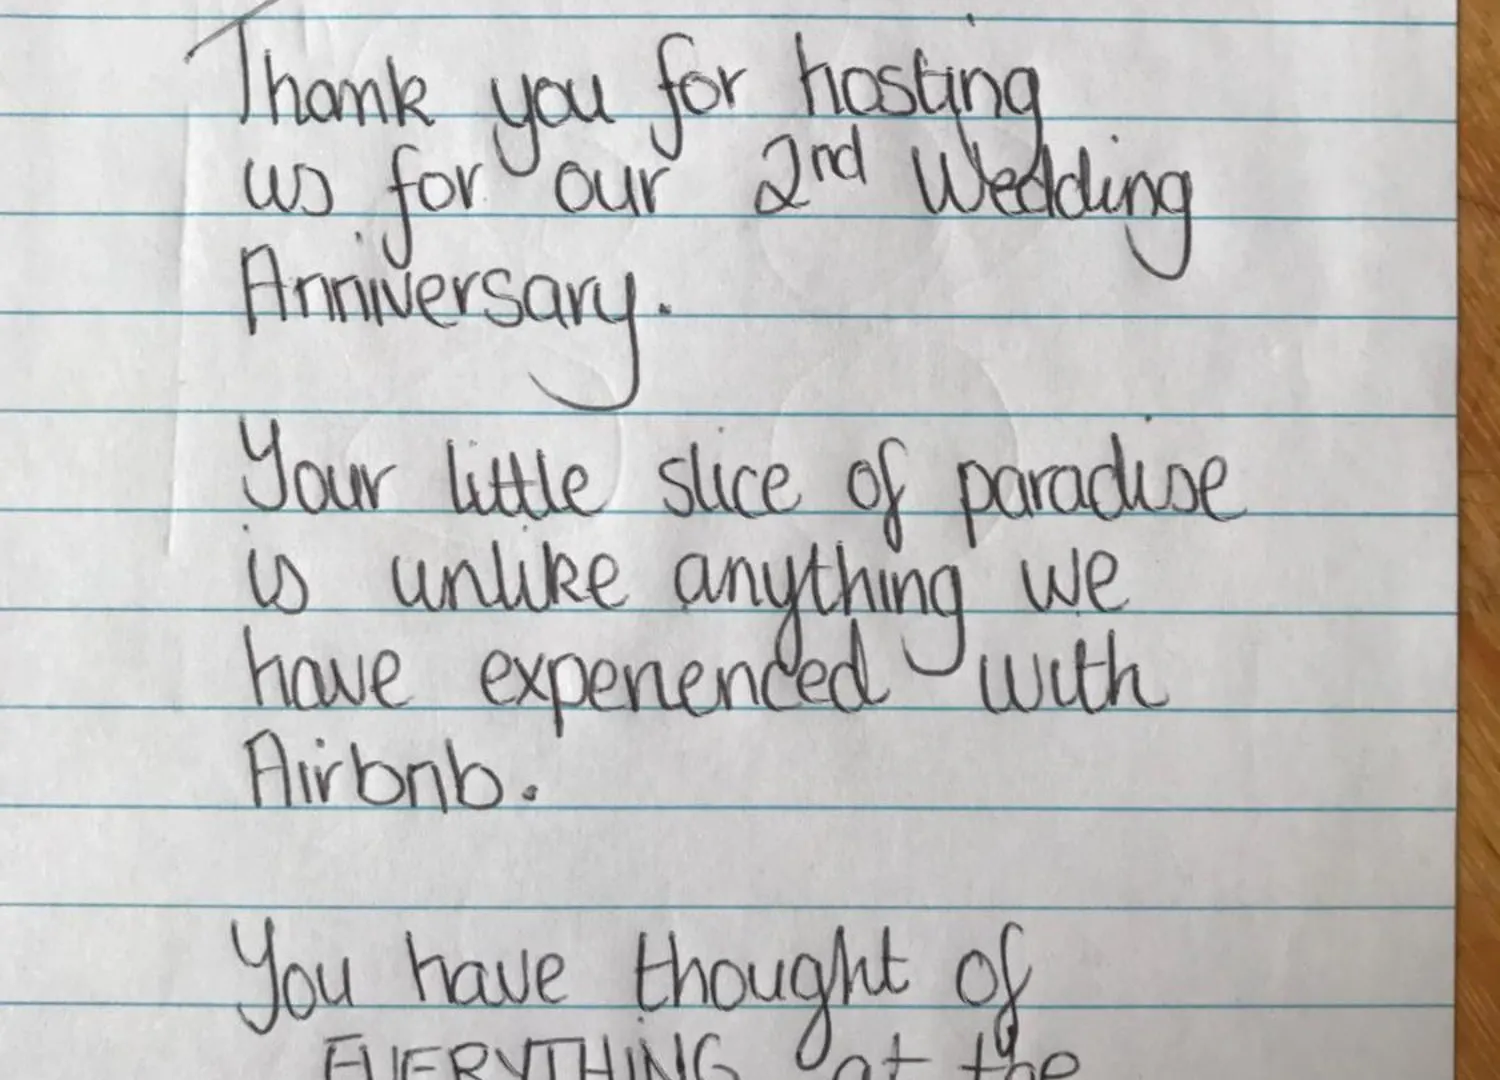 Thank you for hosting
us for our 2nd Wedding
Anniversary.
Your little slice of paradise
is unlike anything we
have experienced with
Airbnb.
You have thought of
EVERYTHING at the